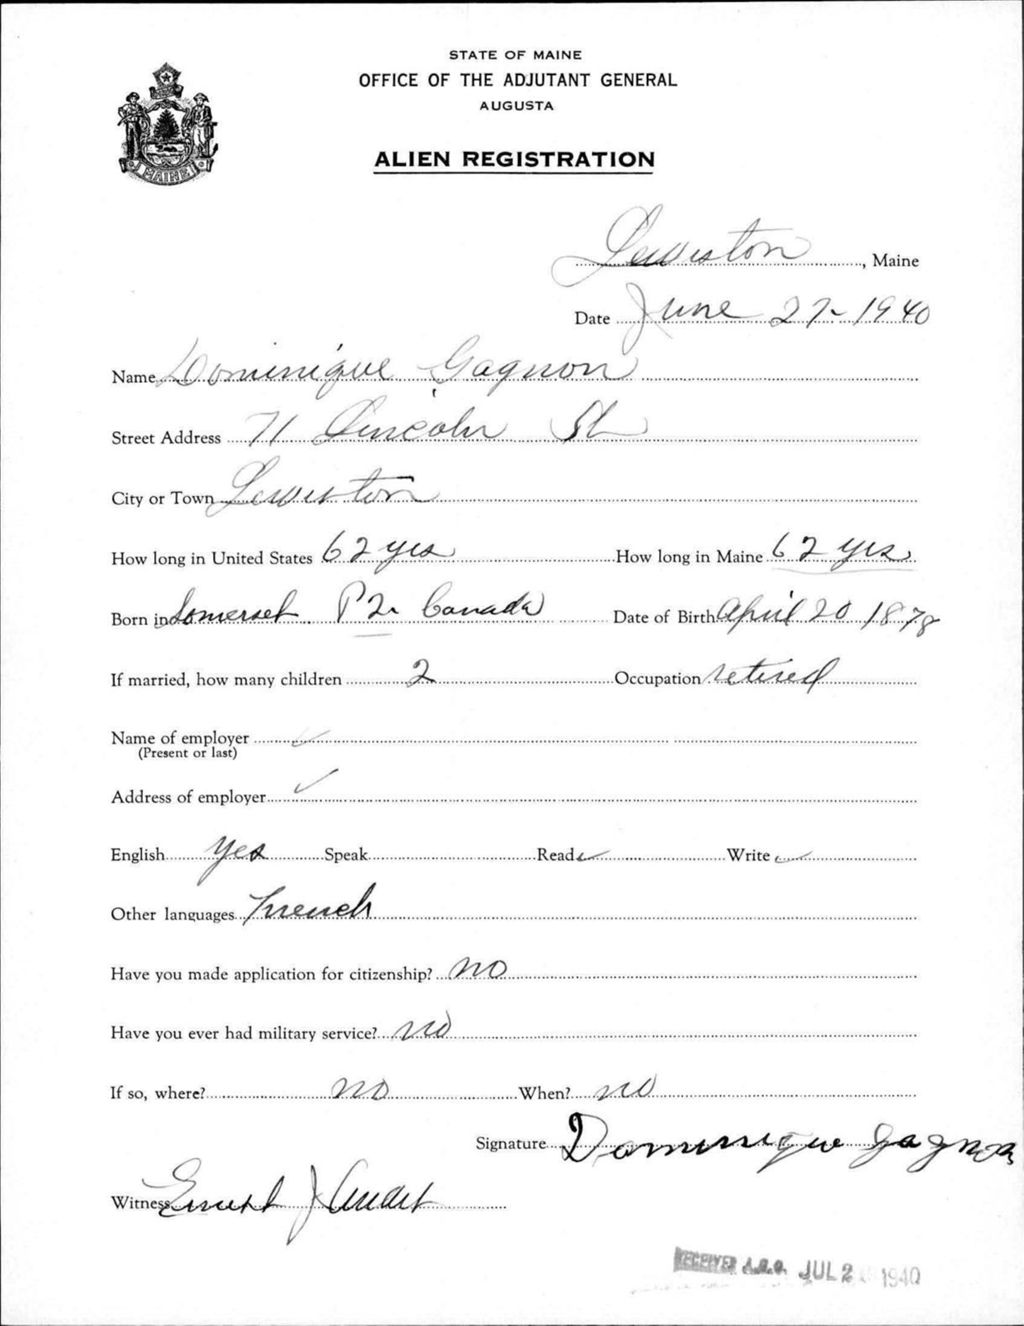 STATE OF MAINE
OFFICE OF THE ADJUTANT GENERAL
AUGUSTA
ALIEN REGISTRATION
MAINE
Lewiston, Maine
Date June 27 - 1940
Name Dominique Gagnon
Street Address 71 Lincoln St
City or Town Lewiston
How long in United States 62 yrs How long in Maine 62 yrs
Born in Somerset P2. Canada Date of Birth April 20 1878
If married, how many children 2 Occupation retired
Name of employer ✓
(Present or last)
Address of employer ✓
English yes Speak Read ✓ Write ✓
Other languages French
Have you made application for citizenship? no
Have you ever had military service? no
If so, where? no When? no
Signature Dominique Gagnon
Witness Ernest J Audet
RECEIVED A.G.O. JUL 2 1940